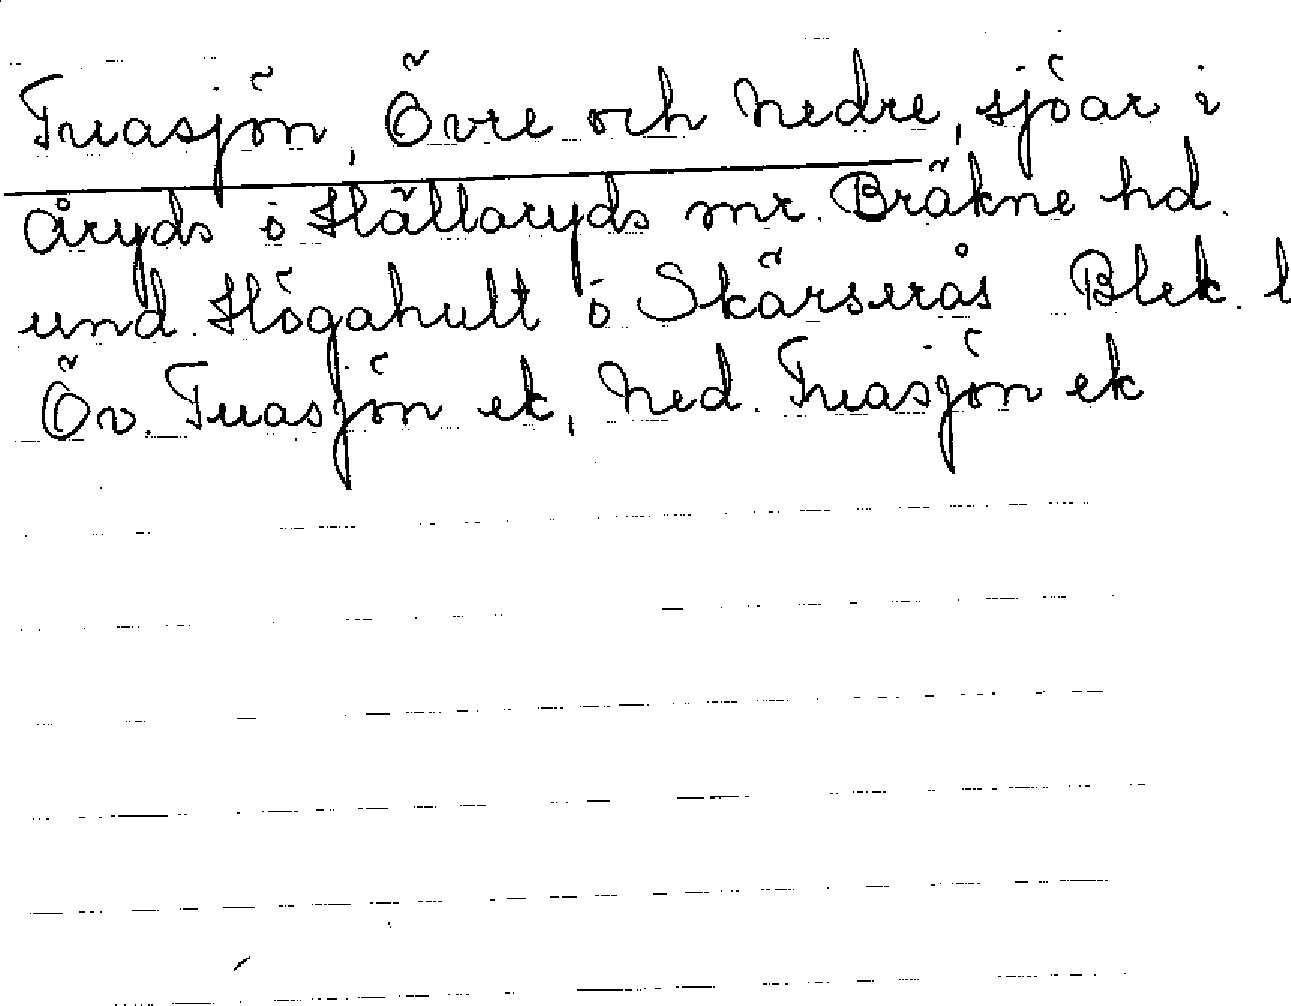 Truasjön, Övre och Nedre, sjöar i
Åryds o Hällaryds mr. Bräkne hd.
und. Högahult o Skärserås Blek. l
Öv. Truasjön ek, Ned. Truasjön ek